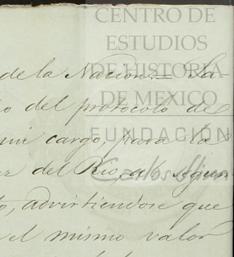 CENTRO DE
ESTUDIOS
DE HISTORIA
DE MEXICO
FUNDACIÓN
Carlos Slim
de la Nacion.— La
o del protocolo de
mi cargo, para la
del Rio, a
o, advirtiendose que
el mismo valor